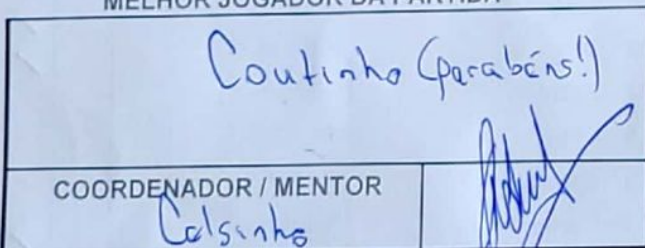 MELHOR JOGADOR DA PARTIDA
Coutinho (parabéns!)
COORDENADOR / MENTOR
Celsinho